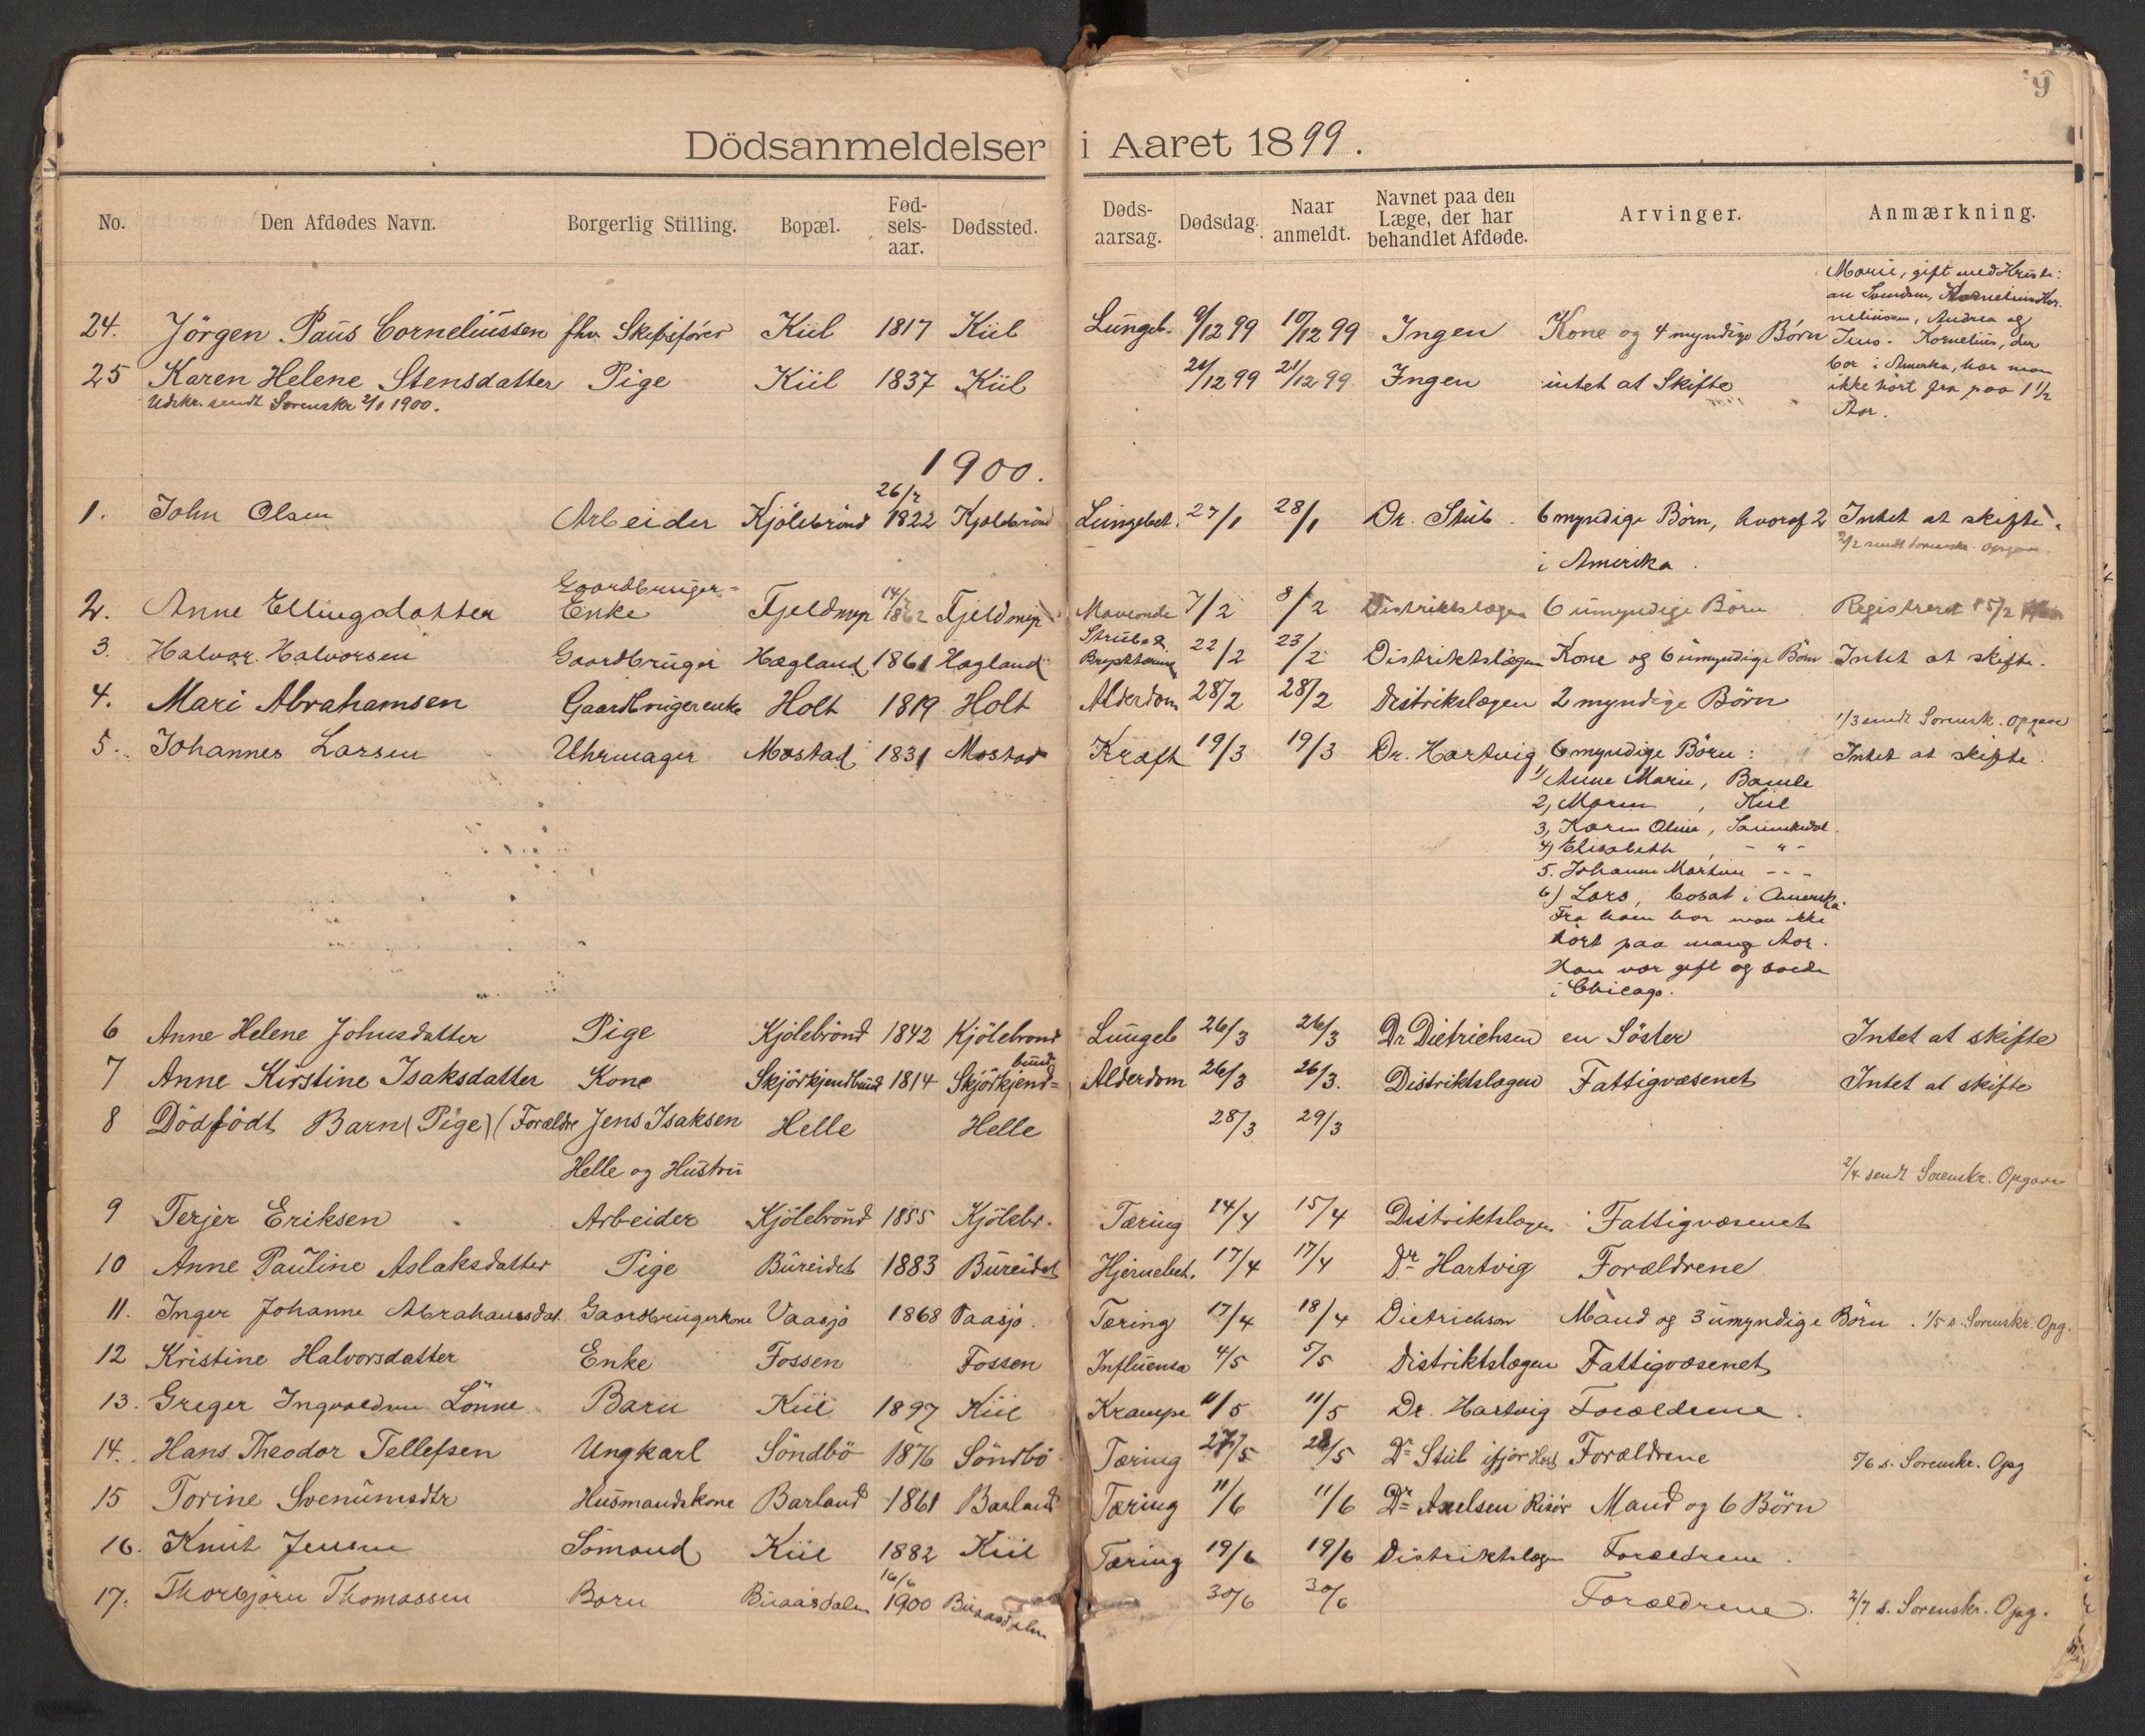 9
Dödsanmeldelser i Aaret 1899.
No. Den Afdødes Navn. Borgerlig Stilling. Bopæl. Fød-selsaar. Dødssted. Døds-aarsag. Dødsdag. Naar anmeldt. Navnet paa den Læge, der har behandlet Afdøde. Arvinger. Anmærkning.
24. Jörgen Paus Corneliussen fhv. Skibsfører Kiil 1817 Kiil Lungeb. 9/12 99 10/12 99 Ingen Kone og 4 myndige Børn
Marie, gift med Kristi:
an Svendsen, Kornelius Kor.
neliussen, Andrea og
Jens. Kornelius, der
bor i Amerika, har man
ikke hørt fra paa 1 1/2
Aar.
25 Karen Helene Stensdatter Pige Kiil 1837 Kiil 21/12 99 21/12 99 Ingen intet at Skifte
Udskr. sendt Sorenskr 2/1 1900.
1900.
26/2
1. John Olsen Arbeider Kjölebrönd 1822 Kjölebrönd Lungebet. 27/1 28/1 Dr. Stub. 6 myndige Börn, hvoraf 2 Intet at skifte.
i Amerika. 2/2 sendt Sorenskr. Opgave.
Gaardbruger= 14/
2. Anne Ellingsdatter Enke Fjeldmyr 1862 Fjeldmyr Maveonde 7/2 8/2 Distriktslægen 6 umyndige Börn Registreret 15/2
Strube &
3. Halvor Halvorsen Gaardbruger Hægland 1861 Hægland Brysttæring 22/2 23/2 Distriktslægen Kone og 6 umyndige Börn Intet at skifte.
4. Mari Abrahamsen Gaardbrugerenke Holt 1819 Holt Alderdom 28/2 28/2 Distrikslægen 2 myndige Börn
1/3 sendt Sorensk. Opgave
5. Johannes Larsen Uhrmager Mostad 1831 Mostad Kræft 19/3 19/3 Dr. Hartvig 6 myndige Börn: Intet at skifte.
1/ Anne Marie, Bamle
2, Maren, Kiil
3, Karen Oline, Sannikedal
4) Elisabeth, - " -
5. Johanne Martine - - -
6) Lars, bosat i Amerika.
Fra ham har man ikke
hört paa mange Aar.
Han var gift og boede
i Chicago.
6 Anne Helene Johnsdatter Pige Kjölebrönd 1842 Kjölebrond Lungeb 26/3 26/3 Dr Dietrichsen en Söster Intet at skifte
7 Anne Kirstine Isaksdatter Kone Skjörkjendbund 1814 Skjörkjend=bund Alderdom 26/3 26/3. Distriktslægen Fattigvæsenet Intet at skifte
8 Dödfödt Barn (Pige) (Forældre Jens Isaksen Helle Helle 28/3 29/3
Helle og Hustru 2/4 sendt Sorenskr. Opgave
9 Terjer Eriksen Arbeider Kjölebrönd 1855 Kjölebr. Tæring 14/4 15/4 Distriktslægen Fattigvæsenet
10 Anne Pauline Aslaksdatter Pige Bureidet 1883 Bureidet Hjernebet. 17/4 17/4 Dr Hartvig Forældrene
11. Inger Johanne Abrahamsdat. Gaardbrugerkone Vaasjø 1868 Vaasjø. Tæring 17/4 18/4 Dietrichson Mand og 3 umyndige Börn. 1/5 s. Sorenskr. Opg.
12 Kristine Halvorsdatter Enke Fossen Fossen Influensa 4/5 5/5 Distriktslægen Fattigvæsenet
13. Greger Ingvaldsen Lönne Barn Kiil 1897 Kiil Krampe 11/5 11/5 Dr. Hartvig Forældrene.
14. Hans Theodor Tellefsen Ungkarl Söndbö 1876 Söndbö Tæring 27/5 28/5 Dr Stub ifjor Høst Forældrene 5/6 s. Sorenskr. Opg
15 Torine Svenumsdtr Husmandskone Barland 1861 Barland Tæring 11/6 11/6 Dr Axelsen Risør Mand og 6 Börn
16. Knut Jensen Sömand Kiil 1882 Kiil Tæring 19/6 19/6 Distriktslægen Forældrene.
16/6
17. Thorbjørn Thomassen Barn Buaasdalen 1900 Buaasdalen 30/6 30/6 Forældrene. 2/7 s. Sorenskr. Opg.